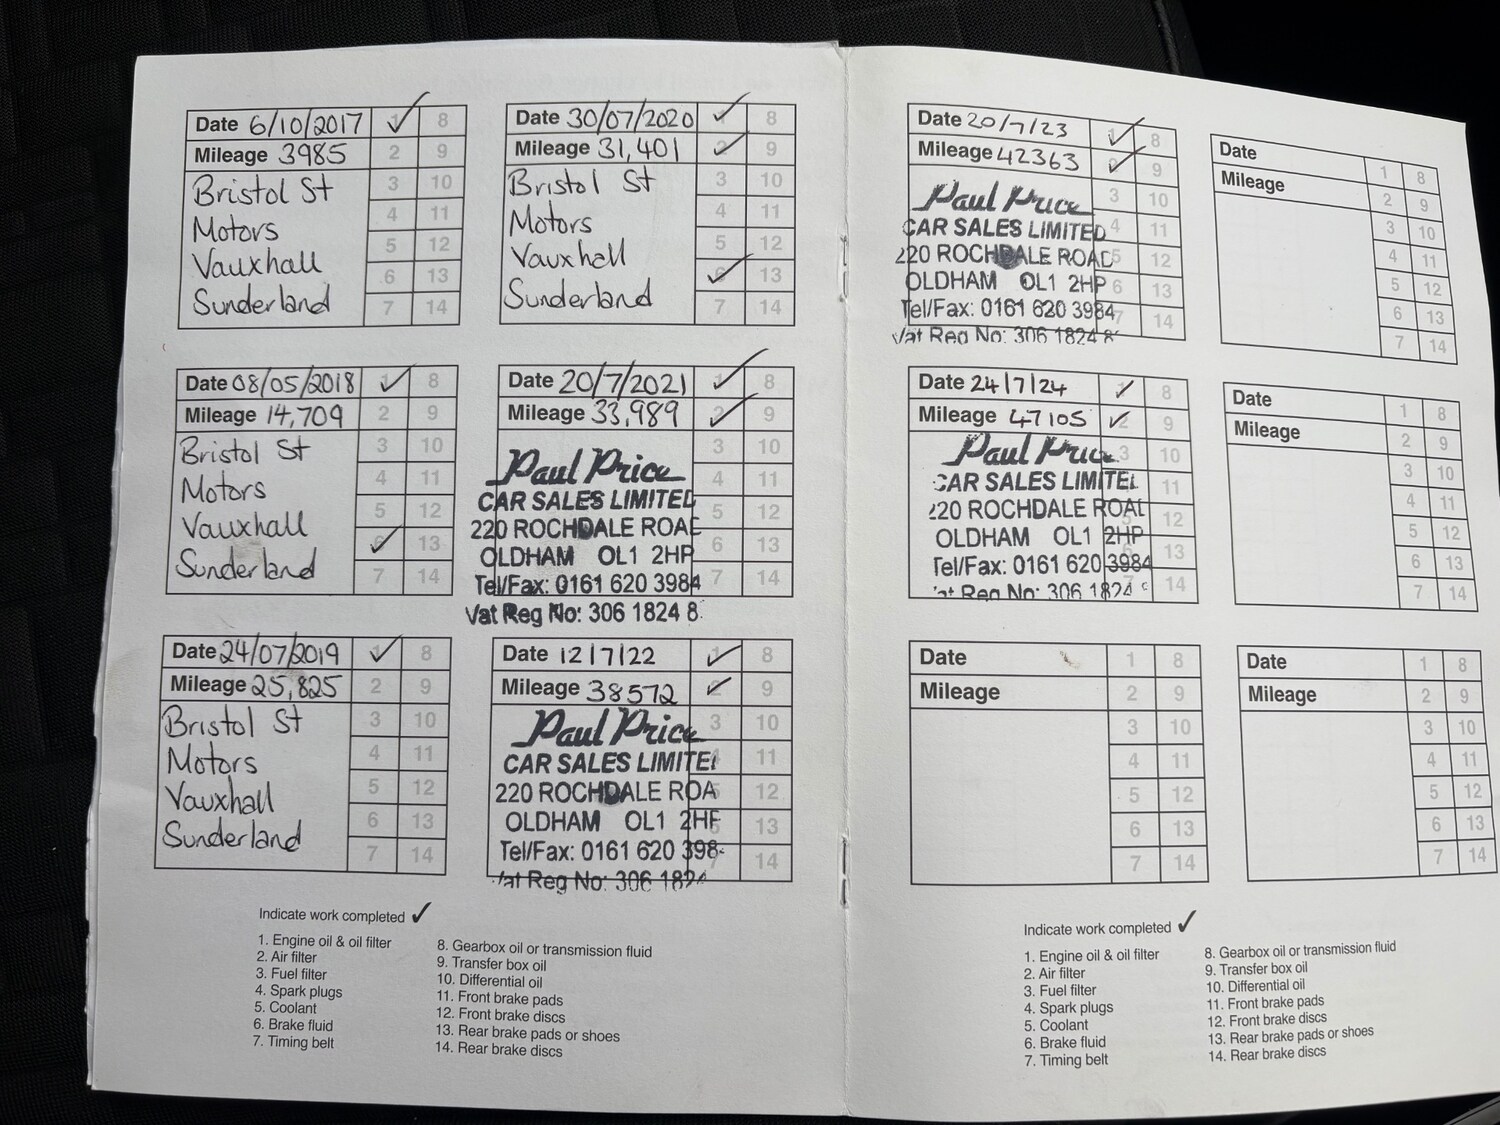 Date 6/10/2017 1 8
Mileage 3985 2 9
Bristol St 3 10
Motors 4 11
Vauxhall 5 12
6 13
Sunderland 7 14
Date 08/05/2018 1 8
Mileage 14,709 2 9
Bristol St 3 10
Motors 4 11
Vauxhall 5 12
6 13
Sunderland 7 14
Date 24/07/2019 1 8
Mileage 25,825 2 9
Bristol St 3 10
Motors 4 11
Vauxhall 5 12
Sunderland 6 13
7 14
Date 30/07/2020 1 8
Mileage 31,401 2 9
Bristol St 3 10
Motors 4 11
Vauxhall 5 12
Sunderland 6 13
7 14
Date 20/7/2021 1 8
Mileage 33,989 2 9
3 10
Paul Price 4 11
CAR SALES LIMITED
220 ROCHDALE ROAD 5 12
OLDHAM OL1 2HP 6 13
Tel/Fax: 0161 620 3984 7 14
Vat Reg No: 306 1824 8
Date 12/7/22 1 8
Mileage 38572 2 9
Paul Price 3 10
CAR SALES LIMITE 4 11
220 ROCHDALE ROA 5 12
OLDHAM OL1 2HP 6 13
Tel/Fax: 0161 620 398 7 14
Vat Reg No: 306 1824
Indicate work completed ✓
1. Engine oil & oil filter
2. Air filter
3. Fuel filter
4. Spark plugs
5. Coolant
6. Brake fluid
7. Timing belt
8. Gearbox oil or transmission fluid
9. Transfer box oil
10. Differential oil
11. Front brake pads
12. Front brake discs
13. Rear brake pads or shoes
14. Rear brake discs
Date 20/7/23 1 8
Mileage 42363 2 9
Paul Price 3 10
CAR SALES LIMITED 4 11
220 ROCHDALE ROAD 5 12
OLDHAM OL1 2HP 6 13
Tel/Fax: 0161 620 3984 7 14
Vat Reg No: 306 1824 8
Date 24/7/24 1 8
Mileage 47105 2 9
Paul Price 3 10
CAR SALES LIMITED 11
220 ROCHDALE ROAD 5 12
OLDHAM OL1 2HP 6 13
Tel/Fax: 0161 620 3984 7 14
Vat Reg No: 306 1824
Date 1 8
Mileage 2 9
3 10
4 11
5 12
6 13
7 14
Date 1 8
Mileage 2 9
3 10
4 11
5 12
6 13
7 14
Date 1 8
Mileage 2 9
3 10
4 11
5 12
6 13
7 14
Date 1 8
Mileage 2 9
3 10
4 11
5 12
6 13
7 14
Indicate work completed ✓
1. Engine oil & oil filter
2. Air filter
3. Fuel filter
4. Spark plugs
5. Coolant
6. Brake fluid
7. Timing belt
8. Gearbox oil or transmission fluid
9. Transfer box oil
10. Differential oil
11. Front brake pads
12. Front brake discs
13. Rear brake pads or shoes
14. Rear brake discs